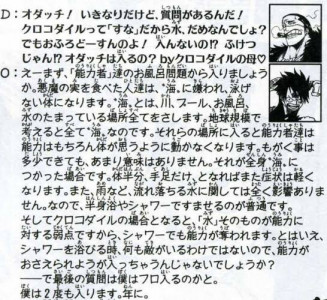 D：オダッチ！ いきなりだけど、質問があるんだ！
クロコダイルって「すな」だから水、だめなんでしょ？
でもおふろどーすんのよ！ 入んないの!? ふけつ
じゃん!? オダッチは入るの？ byクロコダイルの母♡
O：えーまず、「能力者」達のお風呂問題から入りましょう
か。悪魔の実を食べた人達は、"海"に嫌われ、泳げ
ない体になります。"海"とは、川、プール、お風呂、
水のたまっている場所全てをさします。地球規模で
考えると全て"海"なのです。それらの場所に入ると能力者達は
能力はもちろん体が思うように動かなくなります。もがく事は
多少できても、あまり意味はありません。それが全身"海"に
つかった場合です。体半分、手足だけ、となればまた症状は軽く
なります。また、雨など、流れ落ちる水に関しては全く影響ありま
せん。なので、半身浴やシャワーですませるのが普通です。
そしてクロコダイルの場合となると、「水」そのものが能力に
対する弱点ですから、シャワーでも能力が奪われます。とはいえ、
シャワーを浴びる時、何も敵がいるわけではないので、能力が
おさえられようが入っちゃうんじゃないでしょうか？
――で最後の質問は僕はフロ入るのかと。
僕は2度も入ります。年に。